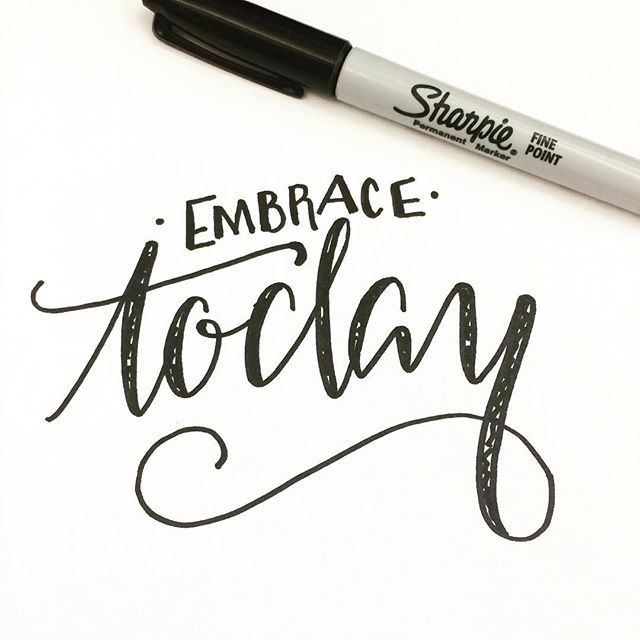 Sharpie®
Permanent Marker
FINE
POINT
· EMBRACE ·
today